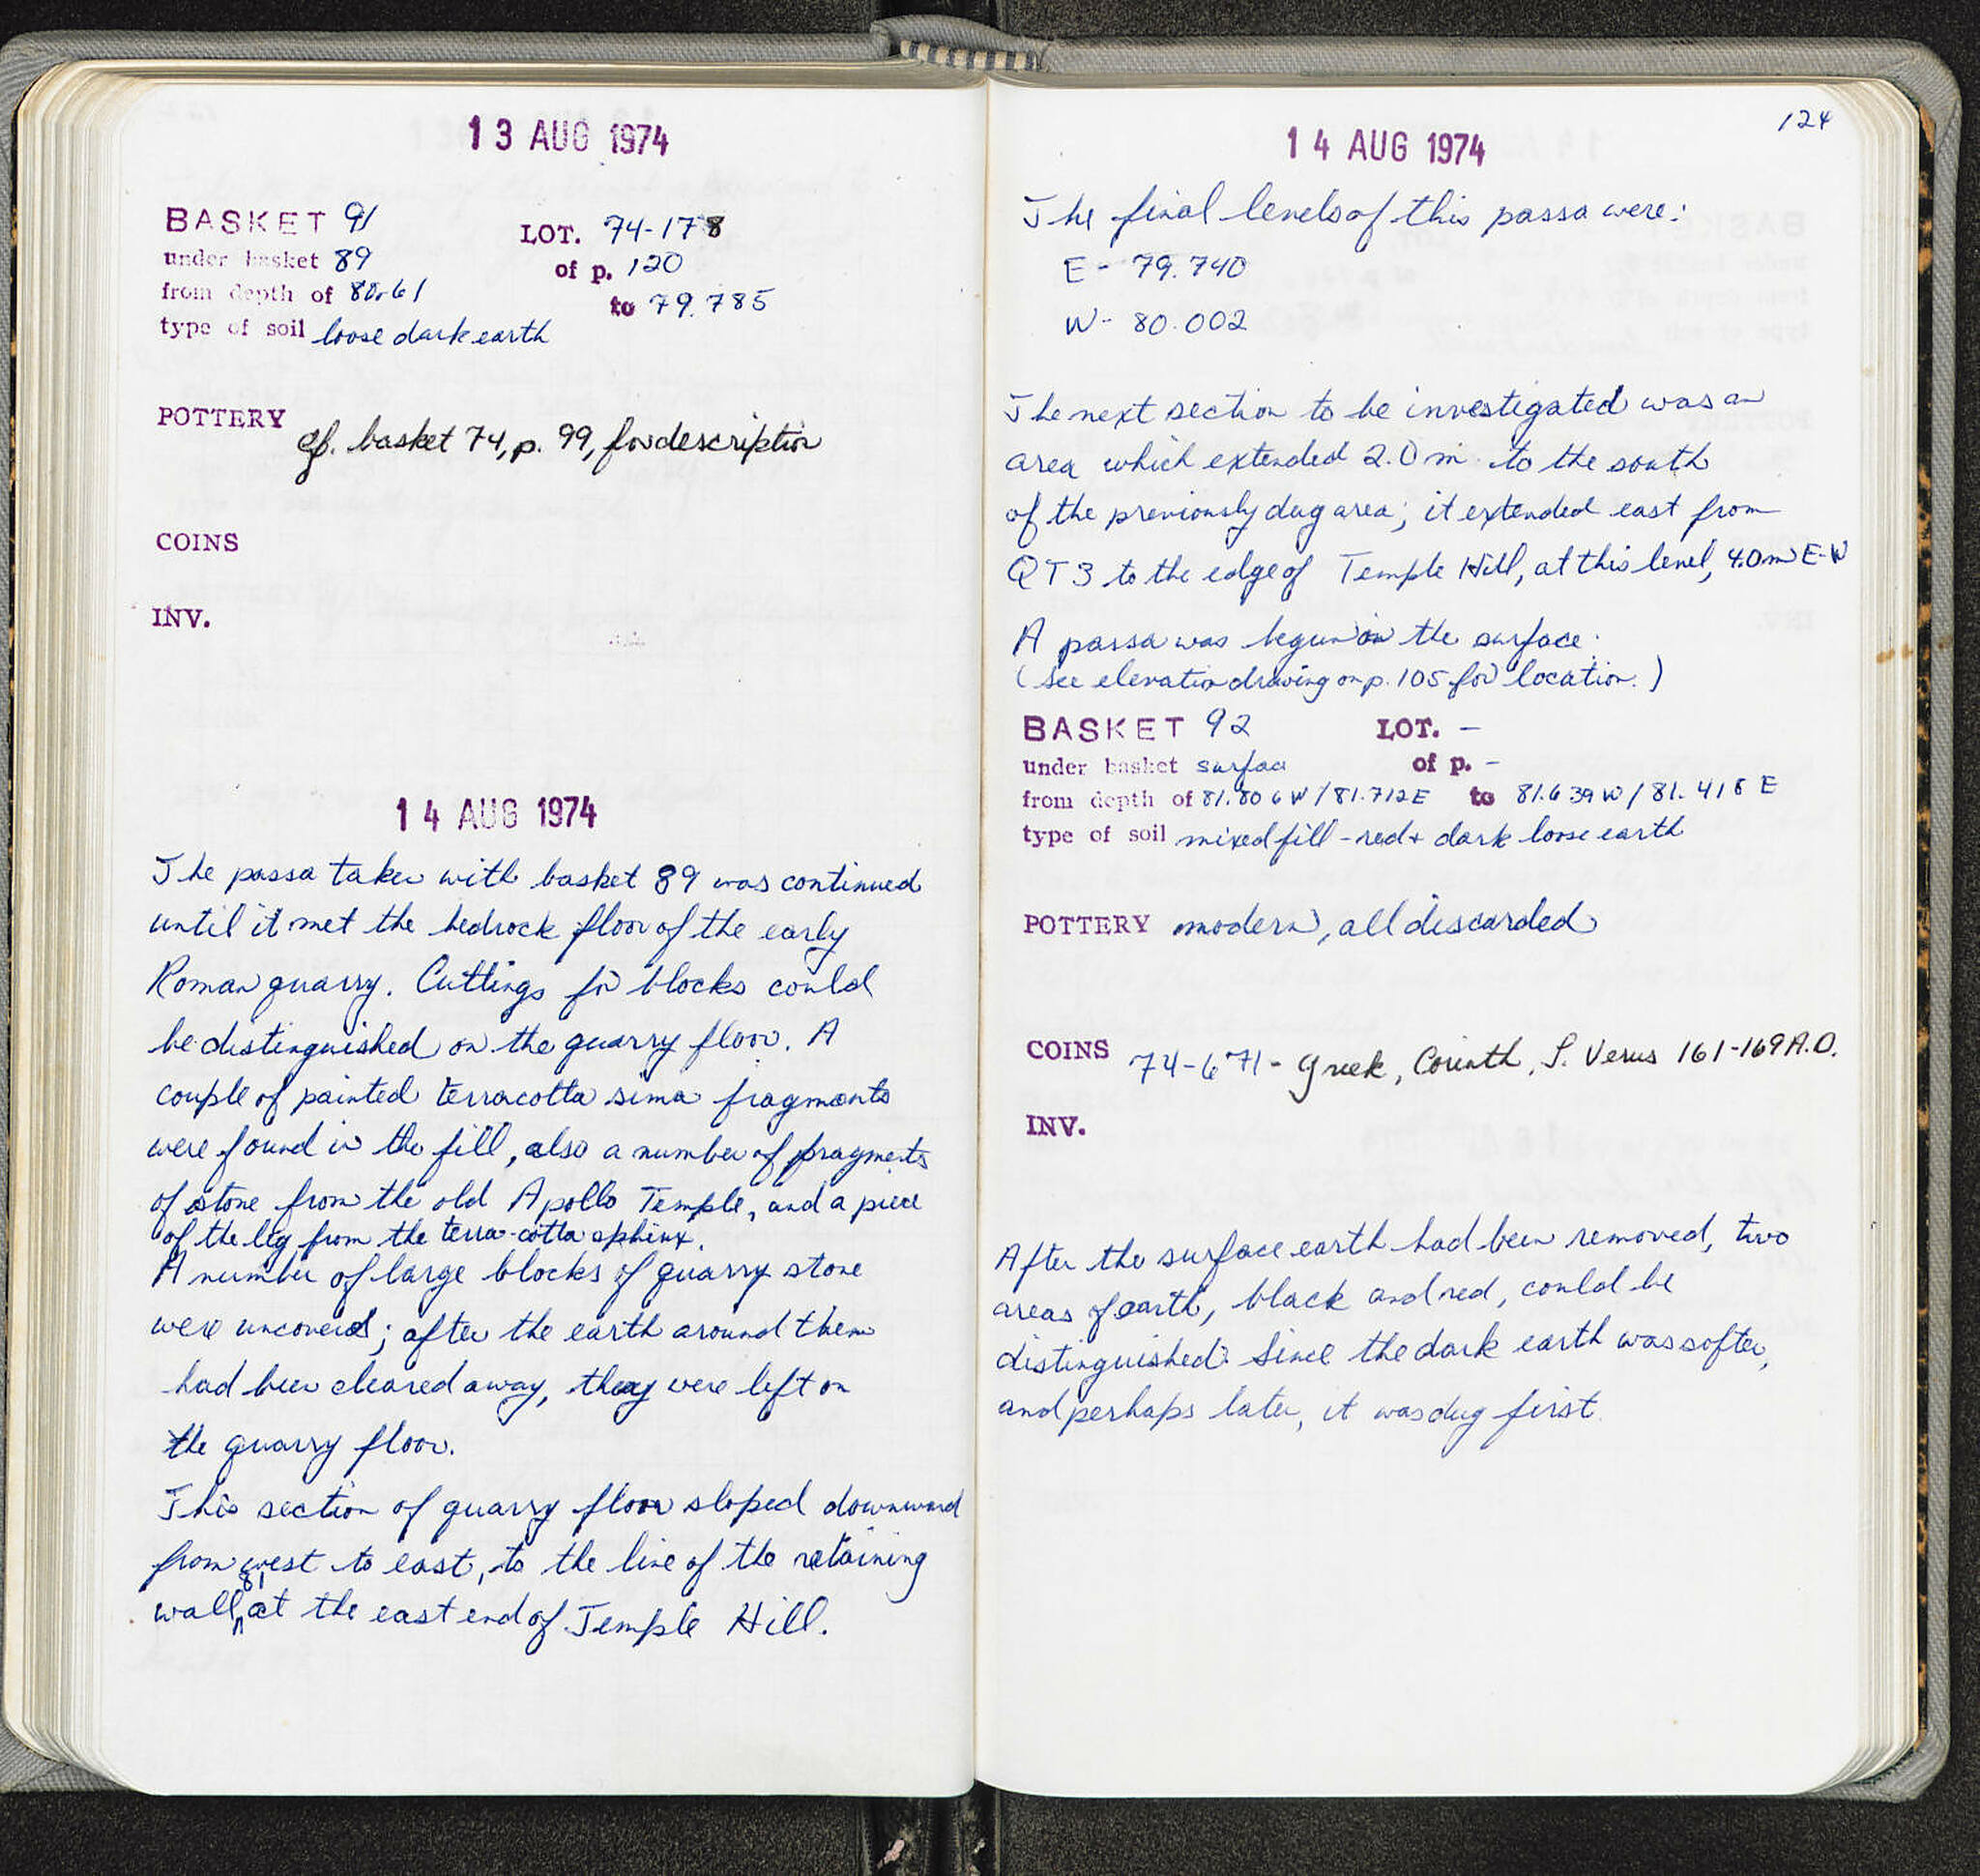 13 AUG 1974
BASKET 91 LOT. 74-178
under basket 89 of p. 120
from depth of 80.61 to 79.785
type of soil loose dark earth
POTTERY cf. basket 74, p. 99, for description
COINS
INV.
14 AUG 1974
The passa taken with basket 89 was continued
until it met the bedrock floor of the early
Roman quarry. Cuttings for blocks could
be distinguished on the quarry floor. A
couple of painted terracotta sima fragments
were found in the fill, also a number of fragments
of stone from the old Apollo Temple, and a piece
of the leg from the terra-cotta sphinx.
A number of large blocks of quarry stone
were uncovered; after the earth around them
had been cleared away, they were left on
the quarry floor.
This section of quarry floor sloped downward
from west to east, to the line of the retaining
wall at the east end of Temple Hill.
124
14 AUG 1974
The final levels of this passa were:
E - 79.740
W - 80.002
The next section to be investigated was an
area which extended 2.0 m to the south
of the previously dug area; it extended east from
QT3 to the edge of Temple Hill, at this level, 4.0m E-W
A passa was begun on the surface.
(See elevation drawing on p. 105 for location.)
BASKET 92 LOT. -
under basket surface of p. -
from depth of 81.806 W / 81.712 E to 81.639 W / 81.418 E
type of soil mixed fill - red + dark loose earth
POTTERY modern, all discarded
COINS 74-671 - Greek, Corinth, L. Verus 161-169 A.D.
INV.
After the surface earth had been removed, two
areas of earth, black and red, could be
distinguished. Since the dark earth was softer,
and perhaps later, it was dug first.